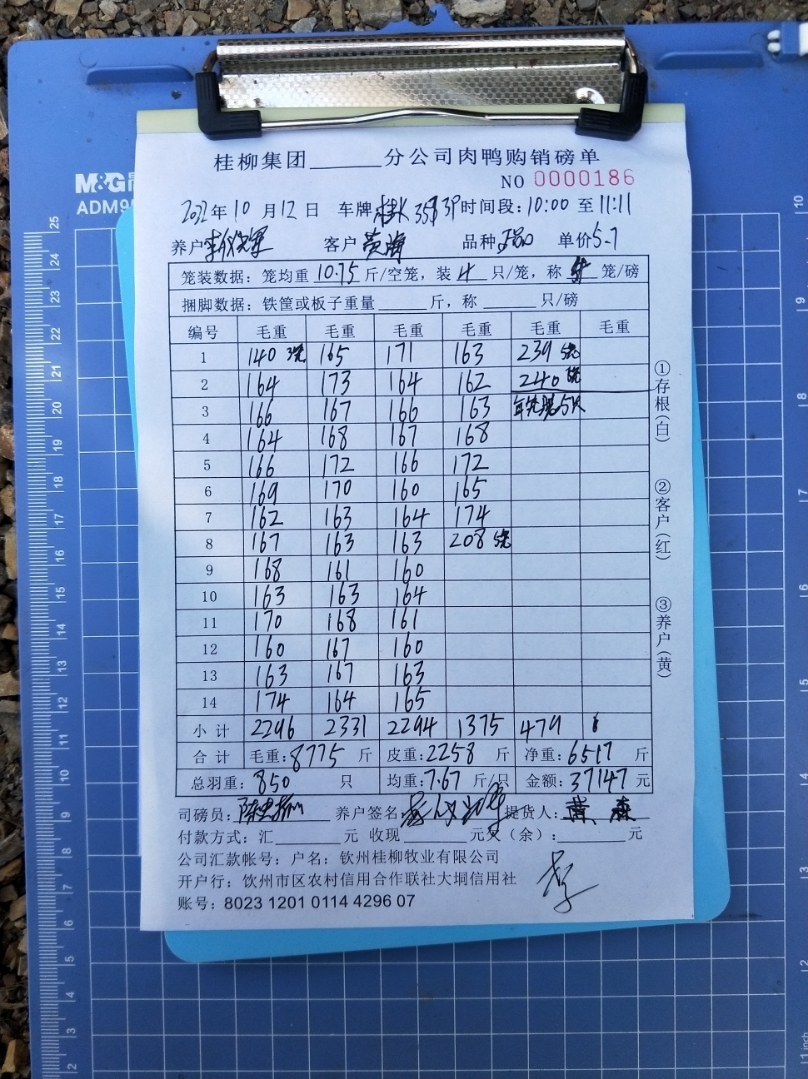 M&G
ADM95
桂柳集团______分公司肉鸭购销磅单
NO 0000186
2022年10月12日 车牌 时间段:10:00至11:11
养户 客户 黄海 品种 单价5.7
笼装数据:笼均重10.75斤/空笼,装4只/笼,称5笼/磅
捆脚数据:铁筐或板子重量______斤,称______只/磅
编号 毛重 毛重 毛重 毛重 毛重 毛重
1 140 165 171 163 239
2 164 173 164 162 240
3 166 167 166 163
4 164 168 167 168
5 166 172 166 172
6 169 170 160 165
7 162 163 164 174
8 167 163 163 208
9 168 161 160
10 163 163 164
11 170 168 161
12 160 167 160
13 163 167 163
14 174 164 165
小计 2296 2331 2294 1375 479
合计 毛重:8775斤 皮重:2258斤 净重:6517斤
总羽重:850只 均重:7.67斤/只 金额:37147元
司磅员: 养户签名 提货人:
付款方式:汇______元 收现______元欠(余):______元
公司汇款帐号:户名:钦州桂柳牧业有限公司
开户行:钦州市区农村信用合作联社大垌信用社
账号:8023 1201 0114 4296 07
①存根(白)
②客户(红)
③养户(黄)